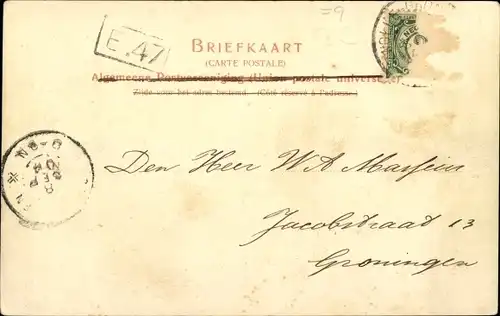 =9
E. 47
BRIEFKAART
(CARTE POSTALE)
Algemeene Postvereeniging (Union postale universelle)
Zijde voor het adres bestemd. (Côté réservé à l'adresse.)
Den Heer W A
Jacobstraat 13
Groningen